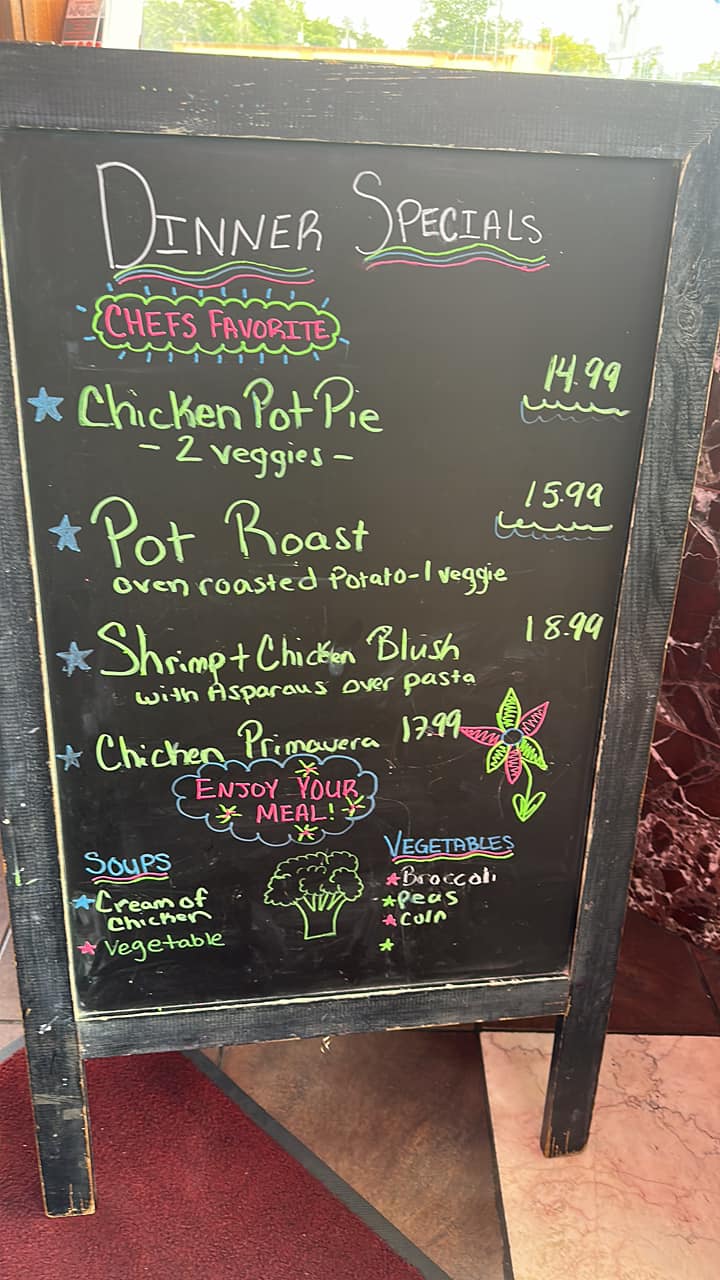 DINNER SPECIALS
CHEFS FAVORITE
Chicken Pot Pie 14.99
- 2 veggies -
Pot Roast 15.99
oven roasted Potato-1 veggie
Shrimp + Chicken Blush 18.99
with Asparaus over pasta
Chicken Primavera 17.99
ENJOY YOUR
MEAL!
SOUPS
Cream of
Chicken
Vegetable
VEGETABLES
Broccoli
Peas
Corn